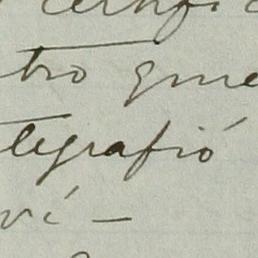 certifi
tro que
telegrafió
ví —